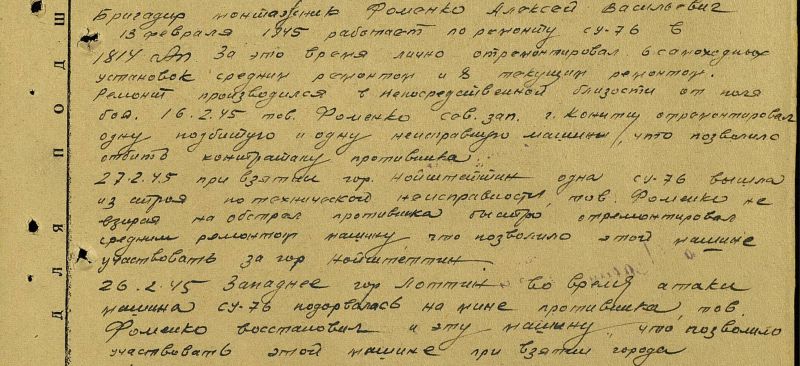 Бригадир монтажник Фоменко Алексей Васильевич
13 февраля 1945 работает по ремонту СУ-76 в
1814 За это время лично отремонтировал 6 самоходных
установок средним ремонтом и 8 текущим ремонтом.
Ремонт производился в непосредственной близости от поля
боя. 16.2.45 тов. Фоменко сев. зап. г. Кониц отремонтировал
одну подбитую и одну неисправную машины, что позволило
отбить контратаку противника.
27.2.45 при взятии гор. Нойштеттин одна СУ-76 вышла
из строя по технической неисправности, тов. Фоменко не
взирая на обстрел противника быстро отремонтировал
средним ремонтом машину, что позволило этой машине
участвовать за гор Нойштеттин
26.2.45 Западнее гор Лоттин во время атаки
машина СУ-76 подорвалась на мине противника, тов.
Фоменко восстановил и эту машину, что позволило
участвовать этой машине при взятии города
ДЛЯ ПОДШ